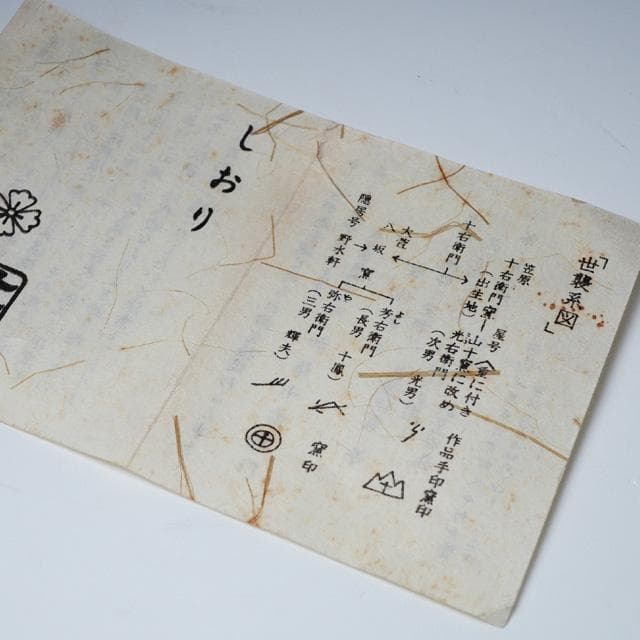 「世襲系図」
笠原
十右衛門窯ー山十窯に改め
屋号(愛に付き
(出生地)
光右衛門
(次男 光男)
作品手印窯印
十右衛門
大萱
八坂窯
芳右衛門
よし
(長男 十鳳)
や
弥右衛門
(三男 輝夫)
窯印
隠居号 野水軒
しおり